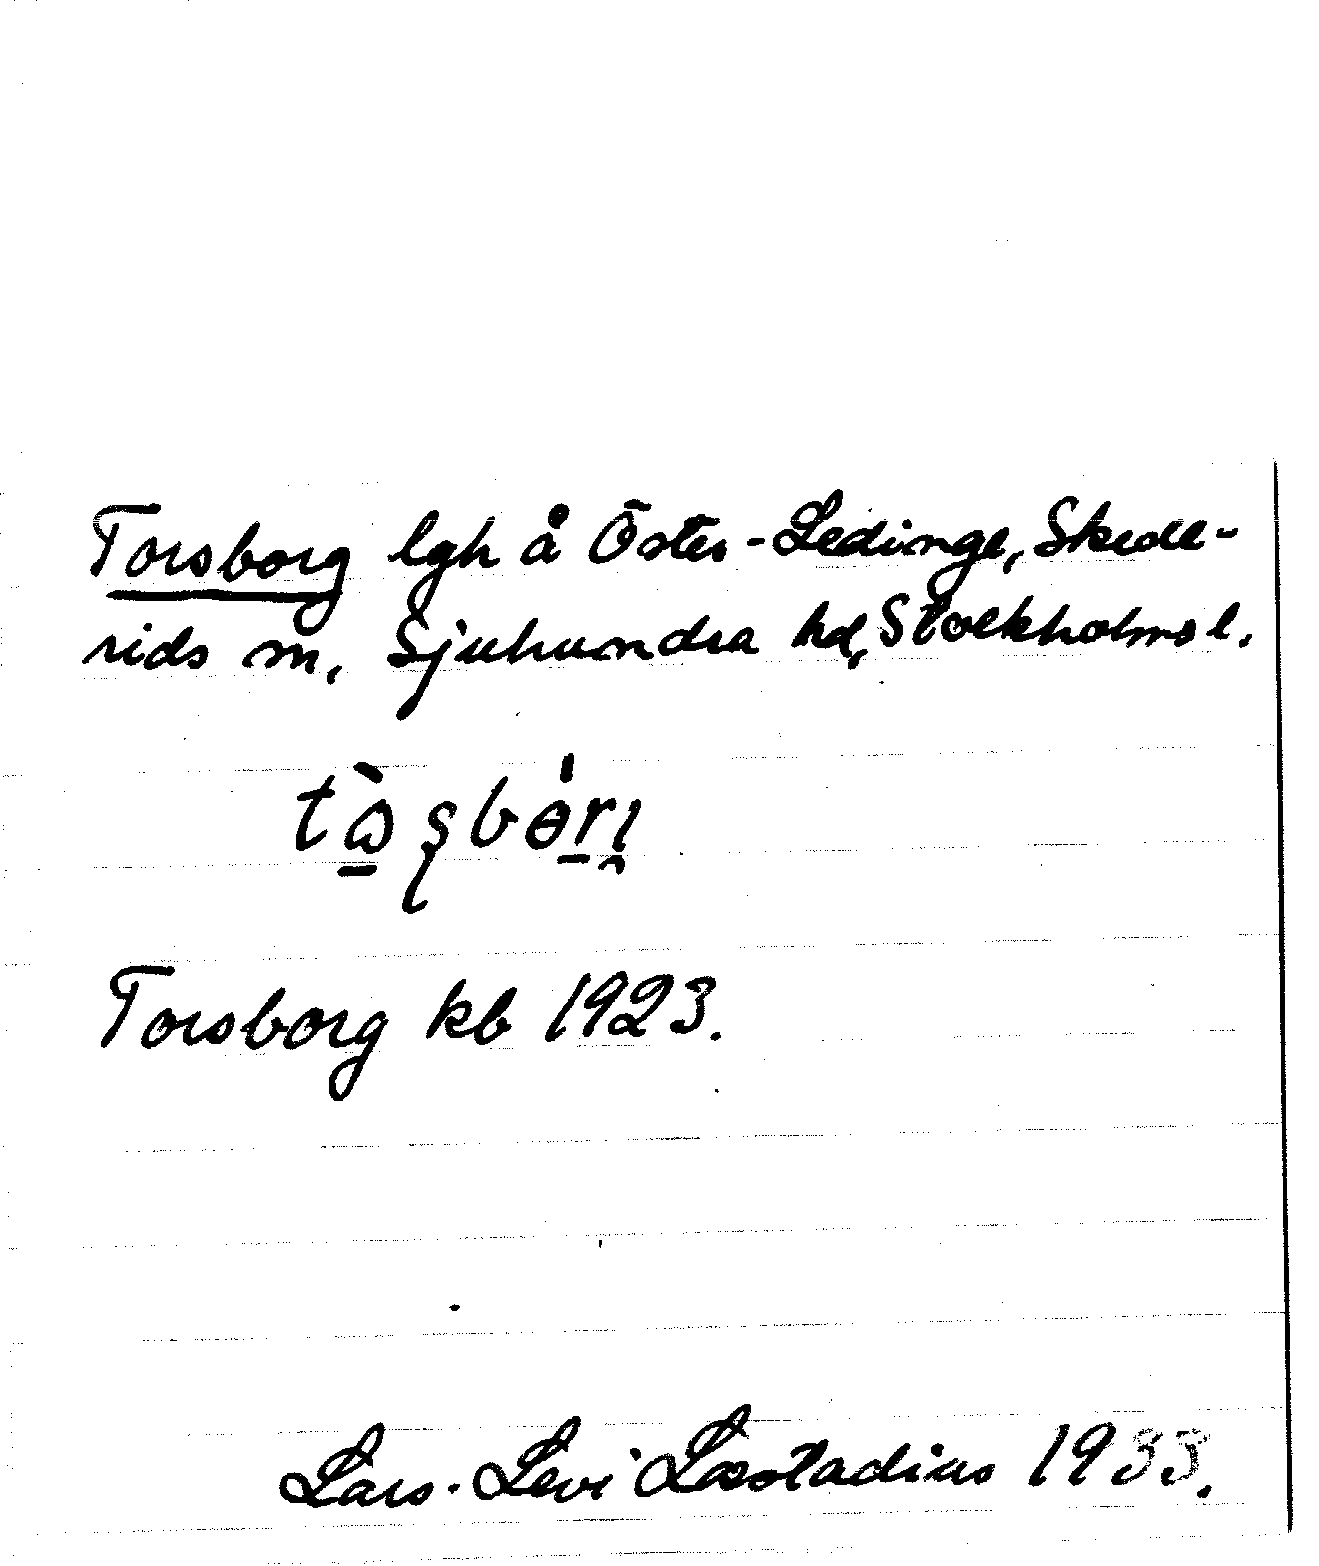 Torsborg lgh å Öster-Ledinge, Skede-
rids sn, Sjuhundra hd, Stockholms l.
Torsborg kb 1923.
Lars-Levi Læstadius 1933.